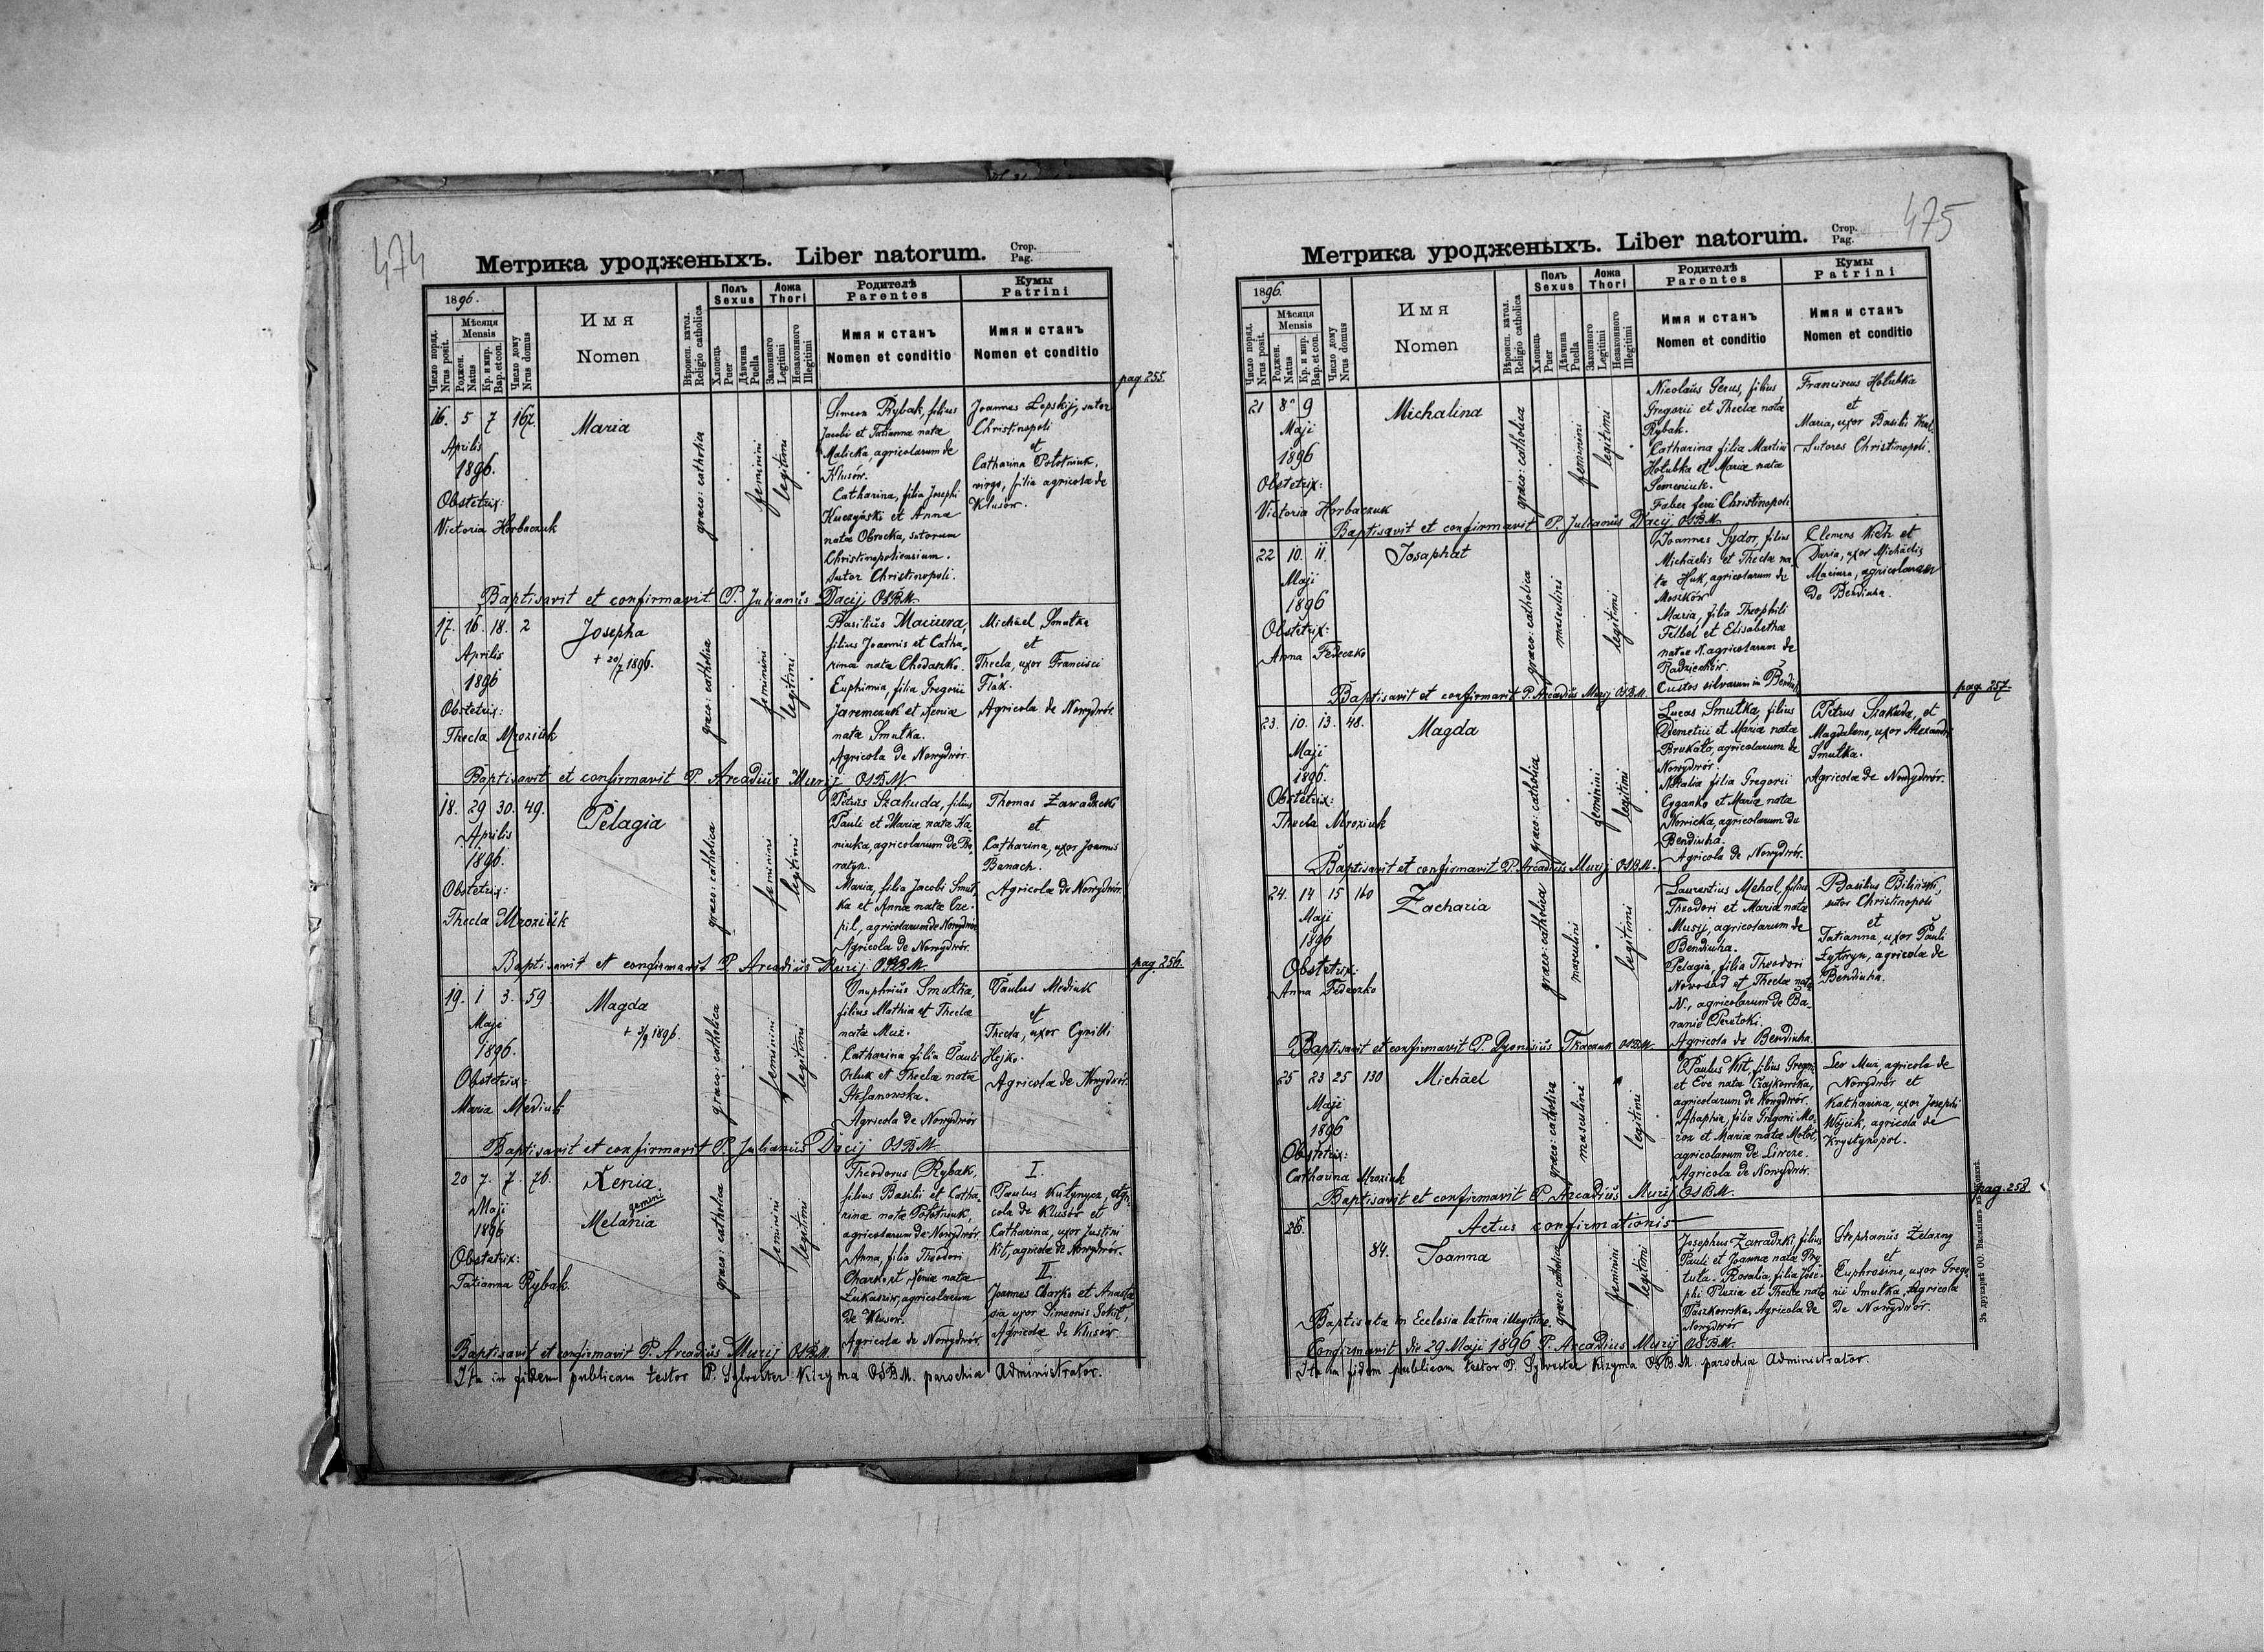 474
Метрика уродженыхъ. Liber natorum.
Стор.
Pag.
1896.
Число поряд.
Nrus posit.
Мѣсяця
Mensis
Роджен.
Natus
Кр. и мир.
Bap. et con.
Число дому
Nrus domus
Имя
Nomen
Вѣроисп. катол.
Religio catholica
Полъ
Sexus
Хлопець
Puer
Дѣвчина
Puella
Ложа
Thori
Законного
Legitimi
Незаконного
Illegitimi
Родителѣ
Parentes
Имя и станъ
Nomen et conditio
Кумы
Patrini
Имя и станъ
Nomen et conditio
pag 255.
16. 5 7 167.
Aprilis
1896.
Obstetrix:
Victoria Horbaczuk
Maria
graeco: catholica
feminini
legitimi
Simeon Rybak, filius
Jacobi et Tatianna nata
Malicka, agricolarum de
Klusów.
Catharina, filia Josephi
Kuczyński et Anna
nata Obrocka, sutorum
Christinopoliensium.
Sutor Christinopoli.
Joannes Lepskij, sutor
Christinopoli
et
Catharina Połotniuk,
virgo, filia agricolæ de
Klusów.
Baptisavit et confirmavit P. Julianus Dacij OSBM.
17. 16. 18. 2
Aprilis
1896
Obstetrix:
Thecla Mroziuk
Josepha
+ 20/7 1896.
graeco: catholica
feminini
legitimi
Basilius Maciura,
filius Joannis et Catha-
rina nata Chodaczko.
Euphimia, filia Gregorii
Jaremczuk et Xenia
nata Smutka.
Agricola de Nowydwór.
Michael Smutka
et
Thecla, uxor Francisci
Flak.
Agricola de Nowydwór.
Baptisavit et confirmavit P. Arcadius Murij OSBM.
18. 29 30. 49.
Aprilis
1896.
Obstetrix:
Thecla Mroziuk
Pelagia
graeco: catholica
feminini
legitimi
Petrus Skakuda, filius
Pauli et Mariæ nata Ha-
niuka, agricolarum de Bo-
ratyn.
Maria, filia Jacobi Smut-
ka et Annæ natæ Cze-
pil, agricolarum de Nowydwór
Agricola de Nowydwór.
Thomas Zawadzki
et
Catharina, uxor Joannis
Banach.
Agricolæ de Nowydwór.
Baptisavit et confirmavit P. Arcadius Murij OSBM.
pag 256.
19. 1 3. 59
Maji
1896.
Obstetrix:
Maria Mediuk
Magda
+ 3/9 1896.
graeco: catholica
feminini
legitimi
Onuphrius Smutka,
filius Mathiæ et Theclæ
natæ Muż.
Catharina filia Pauli
Orluk et Theclæ nata
Stefanowska.
Agricola de Nowydwór
Paulus Mediuk
et
Thecla, uxor Cyrilli
Hejko.
Agricolæ de Nowydwór.
Baptisavit et confirmavit P. Julianus Dacij OSBM.
20 7. 7. 76.
Maji
1896
Obstetrix:
Tatianna Rybak.
Xenia
gemini
Melania
graeco: catholica
feminini
legitimi
Theodorus Rybak,
filius Basilii et Catha-
rinæ natæ Połotniuk,
agricolarum de Nowydwór.
Anna, filia Theodori
Charko et Xeniæ nata
Łukasziw, agricolarum
de Klusów.
Agricola de Nowydwór.
I.
Paulus Kutynycz, agri-
cola de Klusów et
Catharina, uxor Justini
Kit, agricolæ de Nowydwór.
II.
Joannes Charko et Anasta-
sia uxor Simeonis Sokół,
Agricolæ de Klusów.
Baptisavit et confirmavit P. Arcadius Murij OSBM.
Ita in fidem publicam testor P. Sylvester Kizyma OSBM. parochiæ Administrator.
475
Метрика уродженыхъ. Liber natorum.
Стор.
Pag.
1896.
Число поряд.
Nrus posit.
Мѣсяця
Mensis
Роджен.
Natus
Кр. и мир.
Bap. et con.
Число дому
Nrus domus
Имя
Nomen
Вѣроисп. катол.
Religio catholica
Полъ
Sexus
Хлопець
Puer
Дѣвчина
Puella
Ложа
Thori
Законного
Legitimi
Незаконного
Illegitimi
Родителѣ
Parentes
Имя и станъ
Nomen et conditio
Кумы
Patrini
Имя и станъ
Nomen et conditio
21 8 9
Maji
1896
Obstetrix:
Victoria Horbaczuk
Michalina
graeco: catholica
feminini
legitimi
Nicolaus Gerus, filius
Gregorii et Theclæ natæ
Rybak.
Catharina filia Martini
Hołubka et Mariæ nata
Semeniuk.
Faber ferri Christinopoli
Franciscus Hołubka
et
Maria, uxor Basilii
Sutores Christinopoli.
Baptisavit et confirmavit P. Julianus Dacij OSBM.
22 10. 11.
Maji
1896
Obstetrix:
Anna Fedeczko
Josaphat
graeco: catholica
masculini
legitimi
Joannes Sydor, filius
Michaelis et Theclæ na-
tæ Huk, agricolarum de
Moszków
Maria, filia Theophili
Felbel et Elisabethæ
natæ N. agricolarum de
Radziechów.
Custos silvarum in Bendiuha
Clemens Kich et
Daria, uxor Michaelis
Maciura, agricolarum
de Bendiuha.
Baptisavit et confirmavit P. Arcadius Murij OSBM.
pag. 257.
23. 10. 13. 48.
Maji
1896.
Obstetrix:
Thecla Mroziuk
Magda
graeco: catholica
feminini
legitimi
Lucas Smutka, filius
Demetrii et Mariæ natæ
Brukało, agricolarum de
Nowydwór.
Natalia filia Gregorii
Cyganko et Mariæ natæ
Nowicka, agricolarum de
Bendiuha.
Agricola de Nowydwór.
Petrus Skakuda, et
Magdalena, uxor Alexandri
Smutka.
Agricolæ de Nowydwór.
Baptisavit et confirmavit P. Arcadius Murij OSBM.
24. 14 15 160
Maji
1896
Obstetrix:
Anna Fedeczko
Zacharia
graeco: catholica
masculini
legitimi
Laurentius Mehal, filius
Theodori et Mariæ natæ
Musij, agricolarum de
Bendiuha.
Pelagia, filia Theodori
Novosad et Theclæ natæ
N., agricolarum de Ba-
ranie Peretoki.
Agricola de Bendiuha
Basilius Biliński,
sutor Christinopoli
et
Tatianna, uxor Pauli
Łytwyn, agricolæ de
Bendiuha.
Baptisavit et confirmavit P. Dyonisius Tkaczuk OSBM.
25 23 25 130
Maji
1896
Obstetrix:
Catharina Mroziuk
Michael
graeco: catholica
masculini
legitimi
Paulus Kit, filius Gregorii
et Eve natæ Czajkowska,
agricolarum de Nowydwór.
Ahaphia, filia Gregorii Mo-
roz et Mariæ natæ Mołot,
agricolarum de Liwcze.
Agricola de Nowydwór.
Leo Muż, agricola de
Nowydwór et
Katharina, uxor Josephi
Wójcik, agricolæ de
Krystynopol.
Baptisavit et confirmavit P. Arcadius Murij OSBM.
pag. 258
26.
Actus confirmationis
84. Joanna
graeco: catholica
feminini
legitimi
Josephus Zawadzki, filius
Pauli et Joannæ natæ Pry-
tuła. Rosalia, filia Jose-
phi Pluxia et Theclæ natæ
Paszkowska, Agricola de
Nowydwór
Stephanus Żelazny
et
Euphrosina, uxor Grego-
rii Smutka, Agricolæ
de Nowydwór.
Baptisata in Ecclesia latina illegitime.
Confirmavit die 29 Maji 1896 P. Arcadius Murij OSBM.
Ita in fidem publicam testor P. Sylvester Kizyma OSBM. parochiæ Administrator.
Зъ друкарнѣ ОО. Василіянъ въ Жовквѣ.